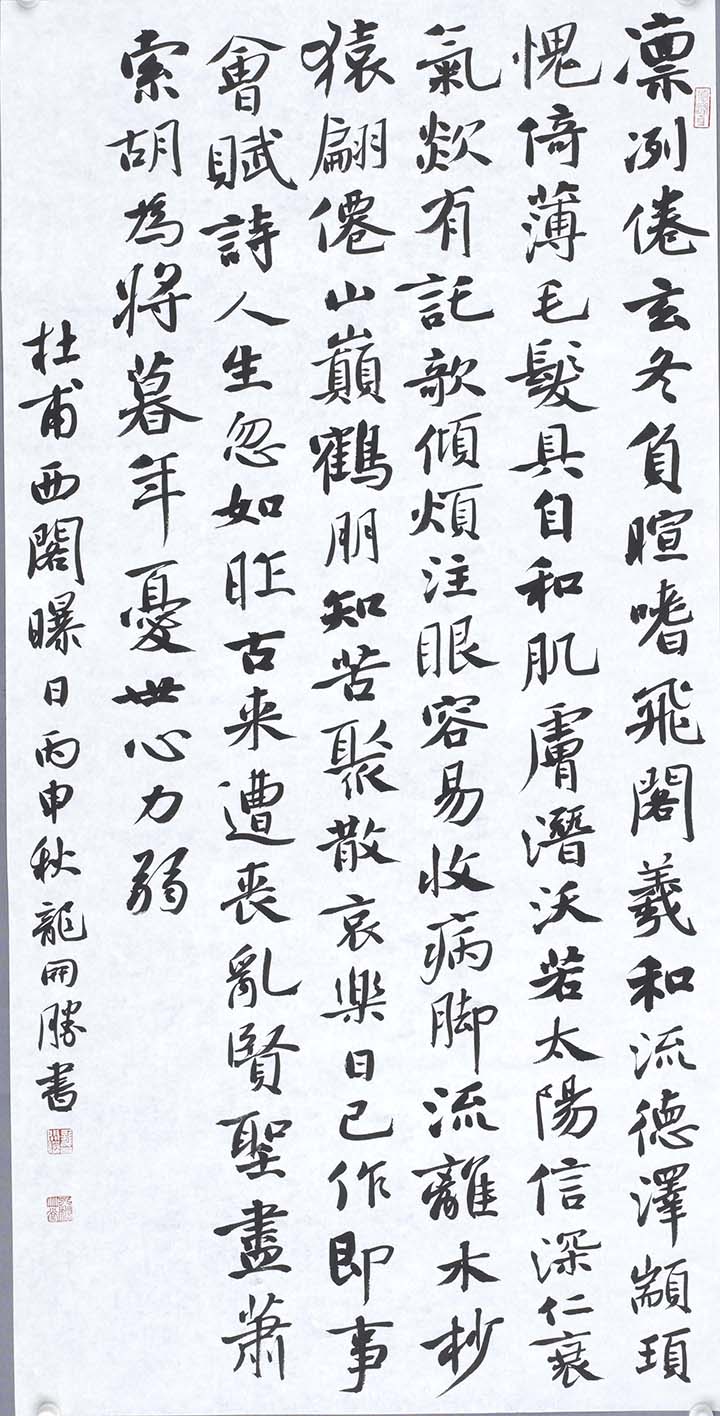 凛冽倦玄冬負暄嗜飛閣羲和流德澤顓頊
愧倚薄毛髮具自和肌膚潛沃若太陽信深仁衰
氣欻有託欹傾煩注眼容易收病脚流離木杪
猿翩僊山巔鶴朋知苦聚散哀樂日已作即事
會賦詩人生忽如昨古来遭丧亂賢聖盡蕭
索胡為将暮年憂世心力弱
杜甫西閣曝日丙申秋龍開勝書